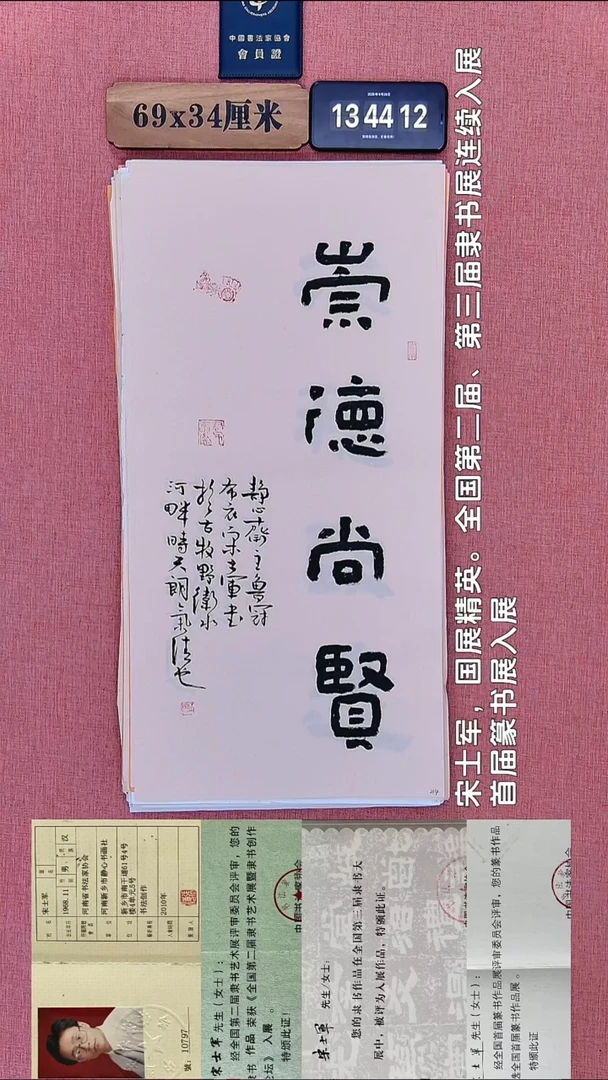 中國書法家協會
會員證
69x34厘米
13 44 12
崇
德
尚
賢
静心齋主魯冠
布衣宋士軍書
於古牧野衛水
河畔時天朗氣清也
宋士军，国展精英。全国第二届、第三届隶书展连续入展
首届篆书展入展
宋士军
男
汉
1968.11
河南省书法家协会
河南新乡市静心书画社
新乡市南干道61号4号
楼4单元5号
书法创作
2010年
號：10797
宋士军 先生（女士）：
经全国第二届隶书艺术展评审委员会评审，您的
隶书 作品 荣获《全国第二届隶书艺术展暨隶书创作
论坛》 入展 。
特颁此证！
宋士军 先生/女士：
您的隶书作品在全国第三届隶书大
展中，被评为入展作品，特颁此证。
士军 先生（女士）：
经全国首届篆书作品展评审委员会评审，您的篆书作品
选全国首届篆书作品展。
特颁此证